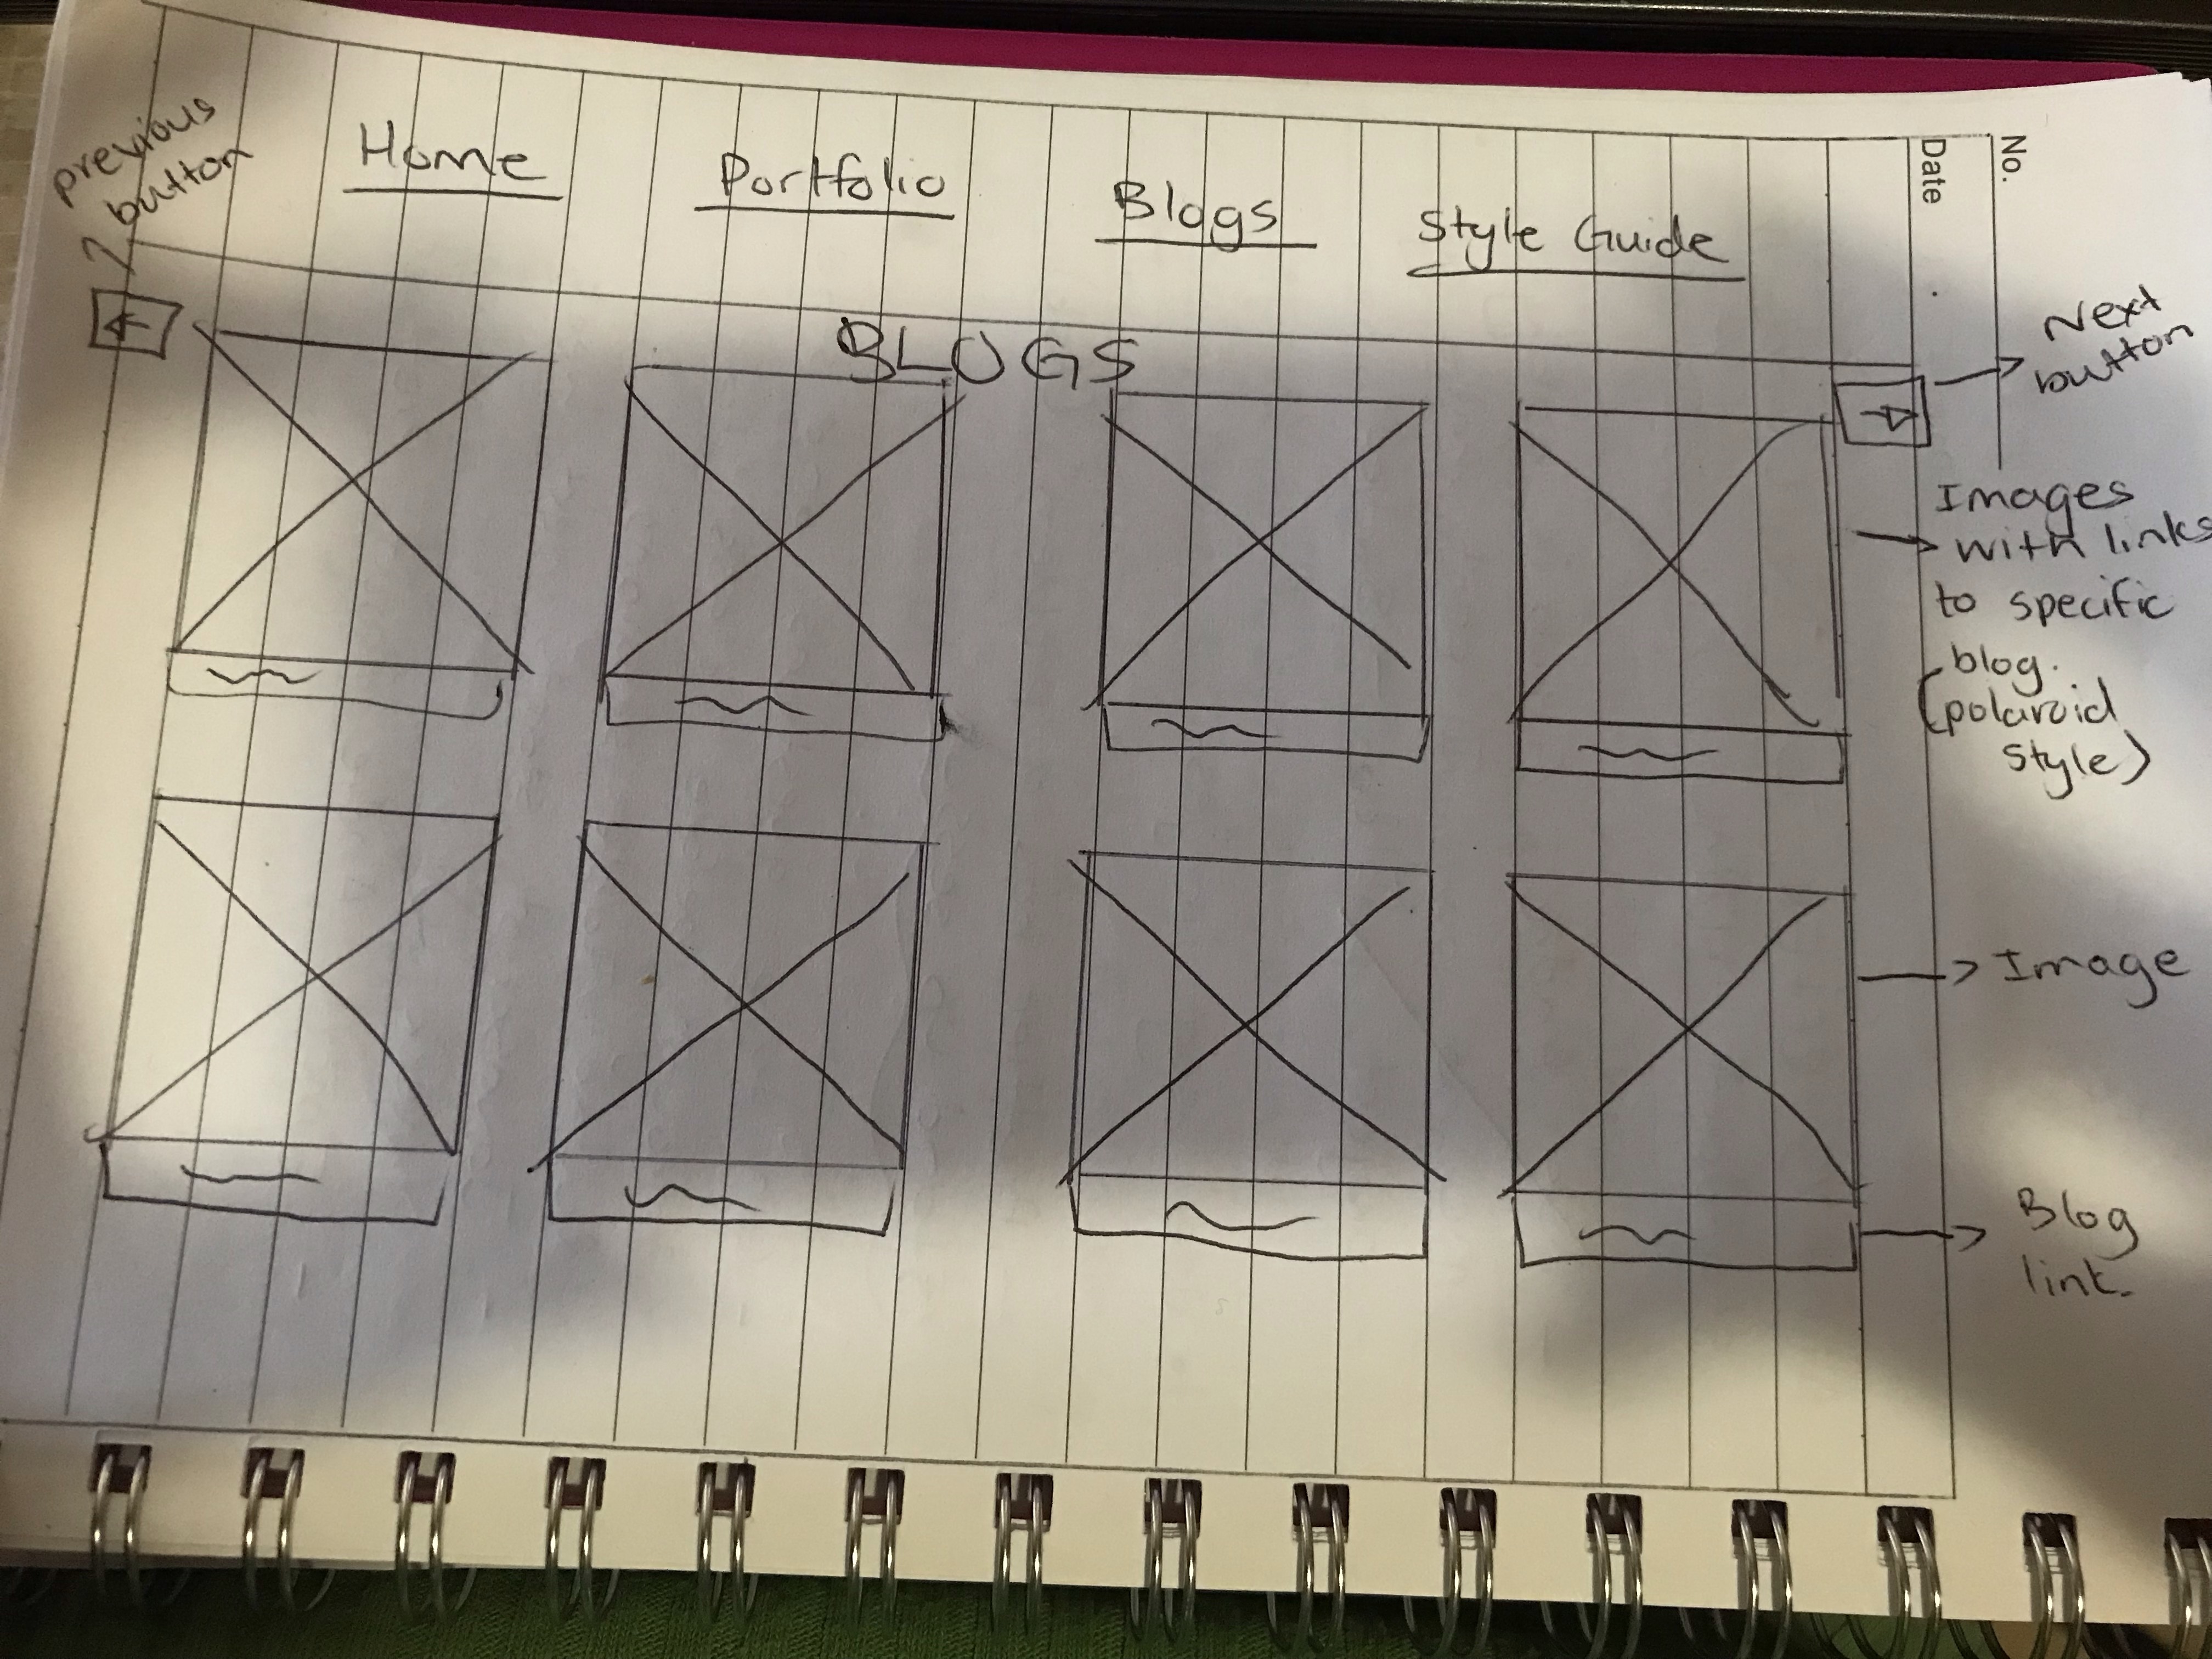 previous
button
Home
Portfolio
Blogs
Style Guide
BLOGS
Next
button
Images
with links
to specific
blog.
(polaroid
style)
Image
Blog
link.
Date
No.